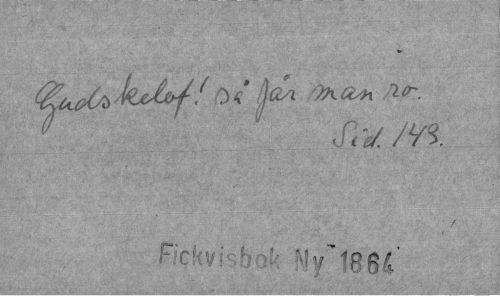 Gudskelof! så får man ro.
Sid. 149.
Fickvisbok Ny 1864